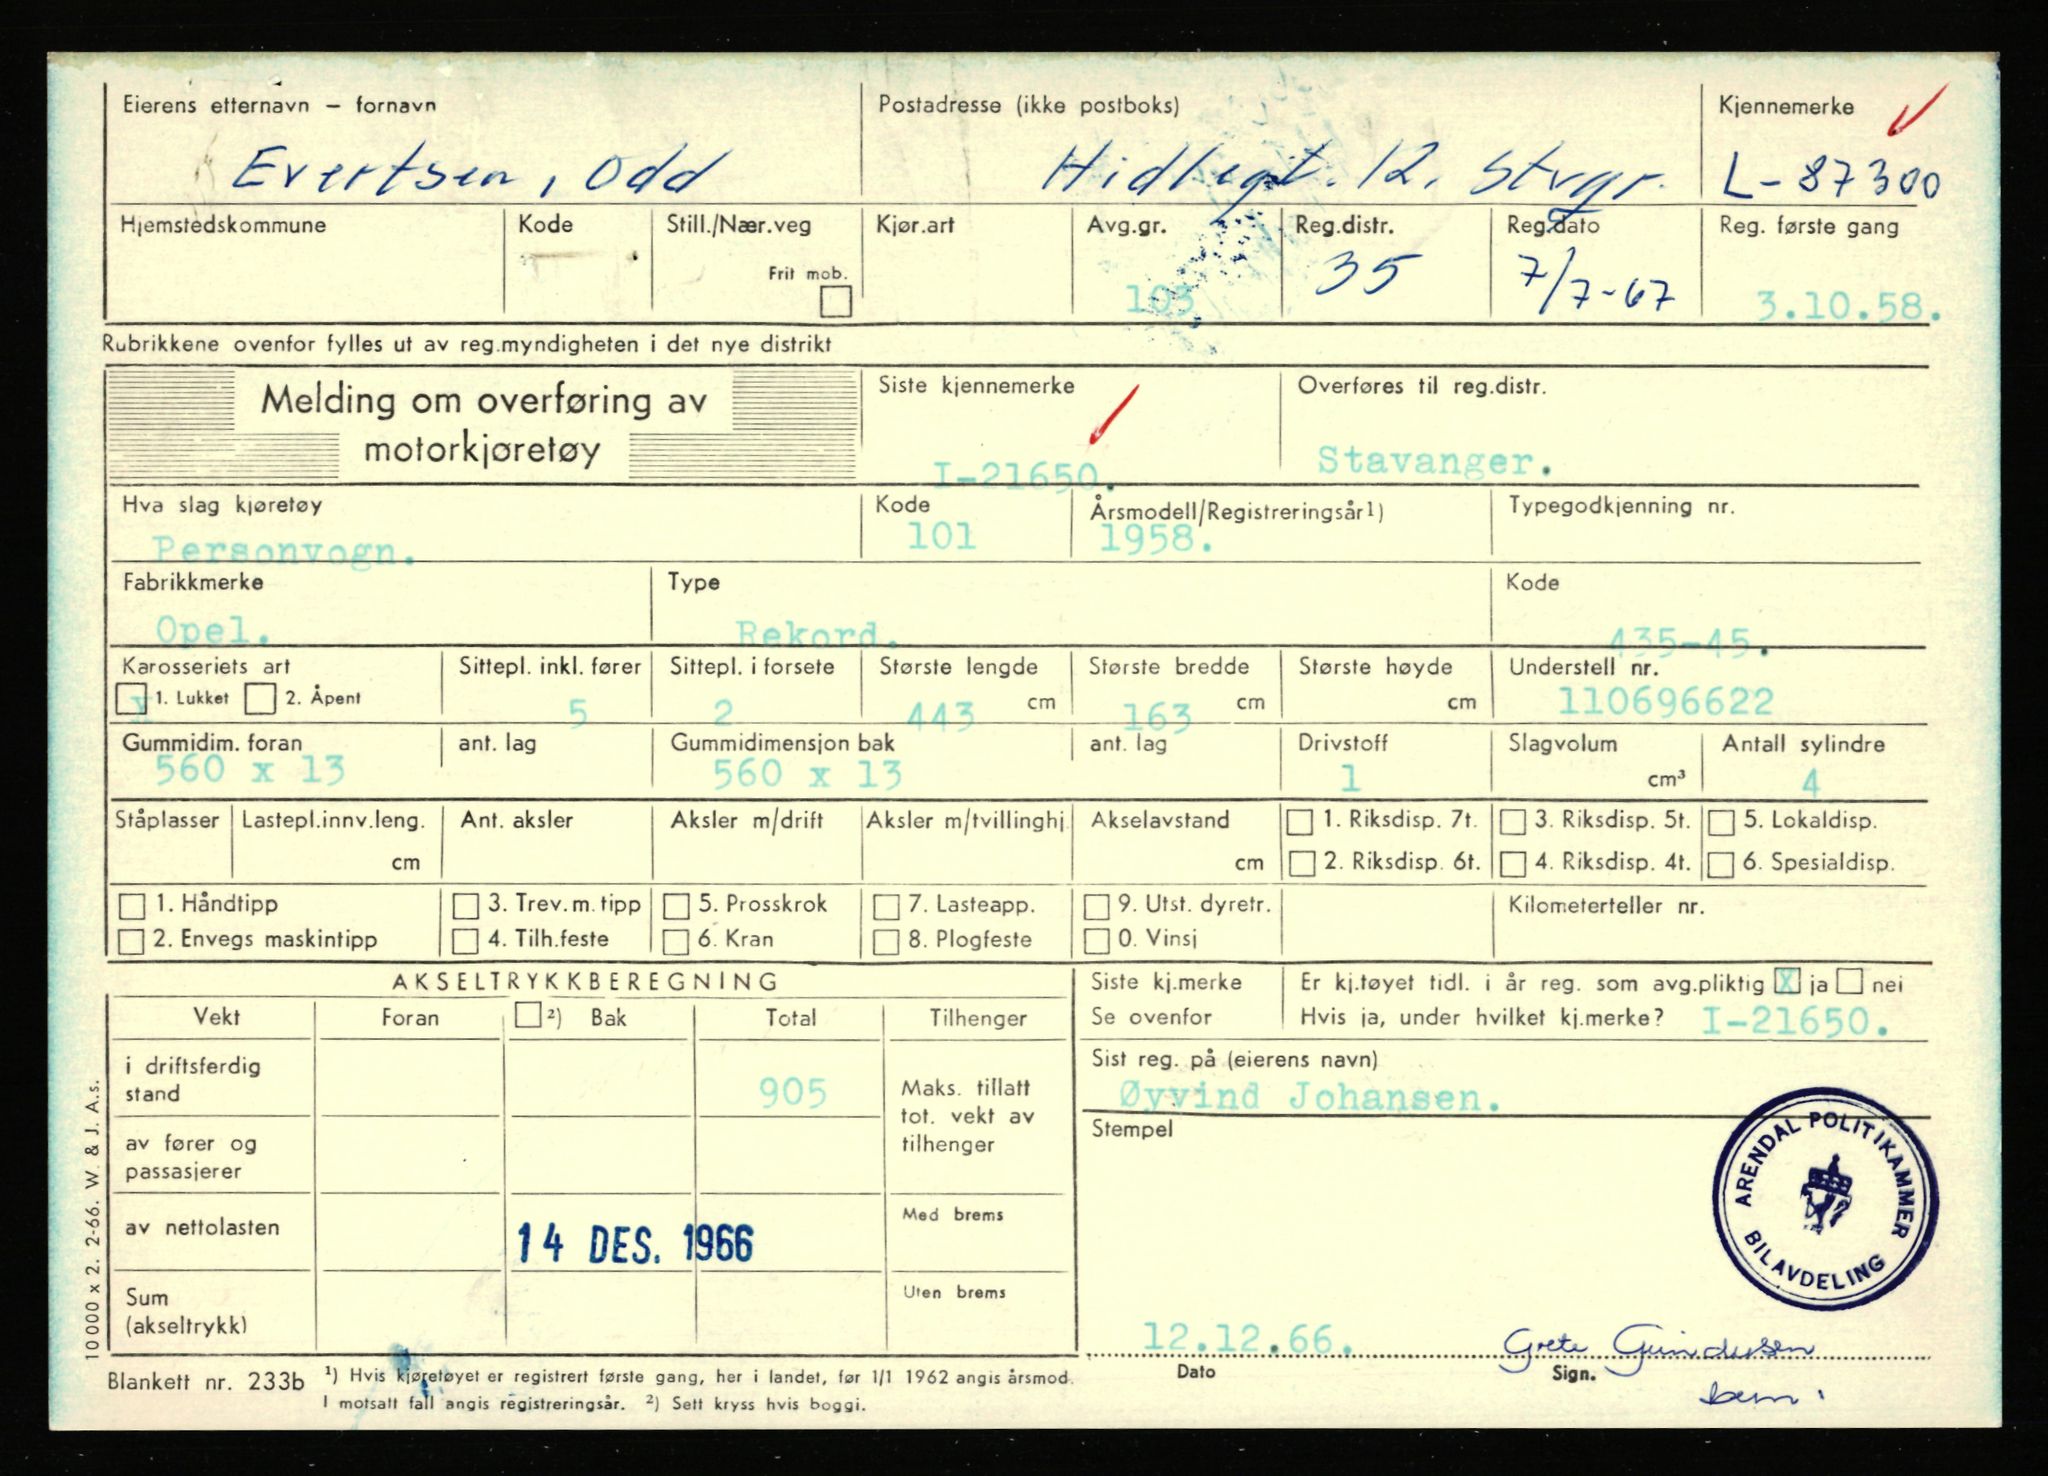 Eierens etternavn – fornavn Postadresse (ikke postboks) Kjennemerke
Evertsen, Odd Hidlegt. 12, Stvgr. L-87300
Hjemstedskommune Kode Still./Nær.veg Kjør.art Avg.gr. Reg.distr. Reg.dato Reg. første gang
Frit mob. 103 35 7/7-67 3.10.58.
Rubrikkene ovenfor fylles ut av reg.myndigheten i det nye distrikt
Melding om overføring av motorkjøretøy
Siste kjennemerke Overføres til reg.distr.
I-21650. Stavanger.
Hva slag kjøretøy Kode Årsmodell/Registreringsår1) Typegodkjenning nr.
Personvogn. 101 1958.
Fabrikkmerke Type Kode
Opel. Rekord. 435-45.
Karosseriets art Sittepl. inkl. fører Sittepl. i forsete Største lengde Største bredde Største høyde Understell nr.
x 1. Lukket 2. Åpent 5 2 443 cm 163 cm cm 110696622
Gummidim. foran ant. lag Gummidimensjon bak ant. lag Drivstoff Slagvolum Antall sylindre
560 x 13 560 x 13 1 cm³ 4
Ståplasser Lastepl.innv.leng. Ant. aksler Aksler m/drift Aksler m/tvillinghj. Akselavstand 1. Riksdisp. 7t. 3. Riksdisp. 5t. 5. Lokaldisp.
cm cm 2. Riksdisp. 6t. 4. Riksdisp. 4t. 6. Spesialdisp.
1. Håndtipp 3. Trev.m.tipp 5. Prosskrok 7. Lasteapp. 9. Utst. dyretr. Kilometerteller nr.
2. Envegs maskintipp 4. Tilh.feste 6. Kran 8. Plogfeste 0. Vinsj
AKSELTRYKKBEREGNING
Vekt Foran 2) Bak Total Tilhenger
i driftsferdig stand 905
Maks. tillatt tot. vekt av tilhenger
av fører og passasjerer
av nettolasten Med brems
14 DES. 1966
Sum (akseltrykk) Uten brems
Siste kj.merke Er kj.tøyet tidl. i år reg. som avg.pliktig X ja nei
Se ovenfor Hvis ja, under hvilket kj.merke? I-21650.
Sist reg. på (eierens navn)
Øyvind Johansen.
Stempel
ARENDAL POLITIKAMMER
BILAVDELING
12.12.66. Grete Gundersen
Dato Sign.
10 000 x 2. 2-66. W. & J. A.s.
Blankett nr. 233b 1) Hvis kjøretøyet er registrert første gang, her i landet, før 1/1 1962 angis årsmod.
I motsatt fall angis registreringsår. 2) Sett kryss hvis boggi.